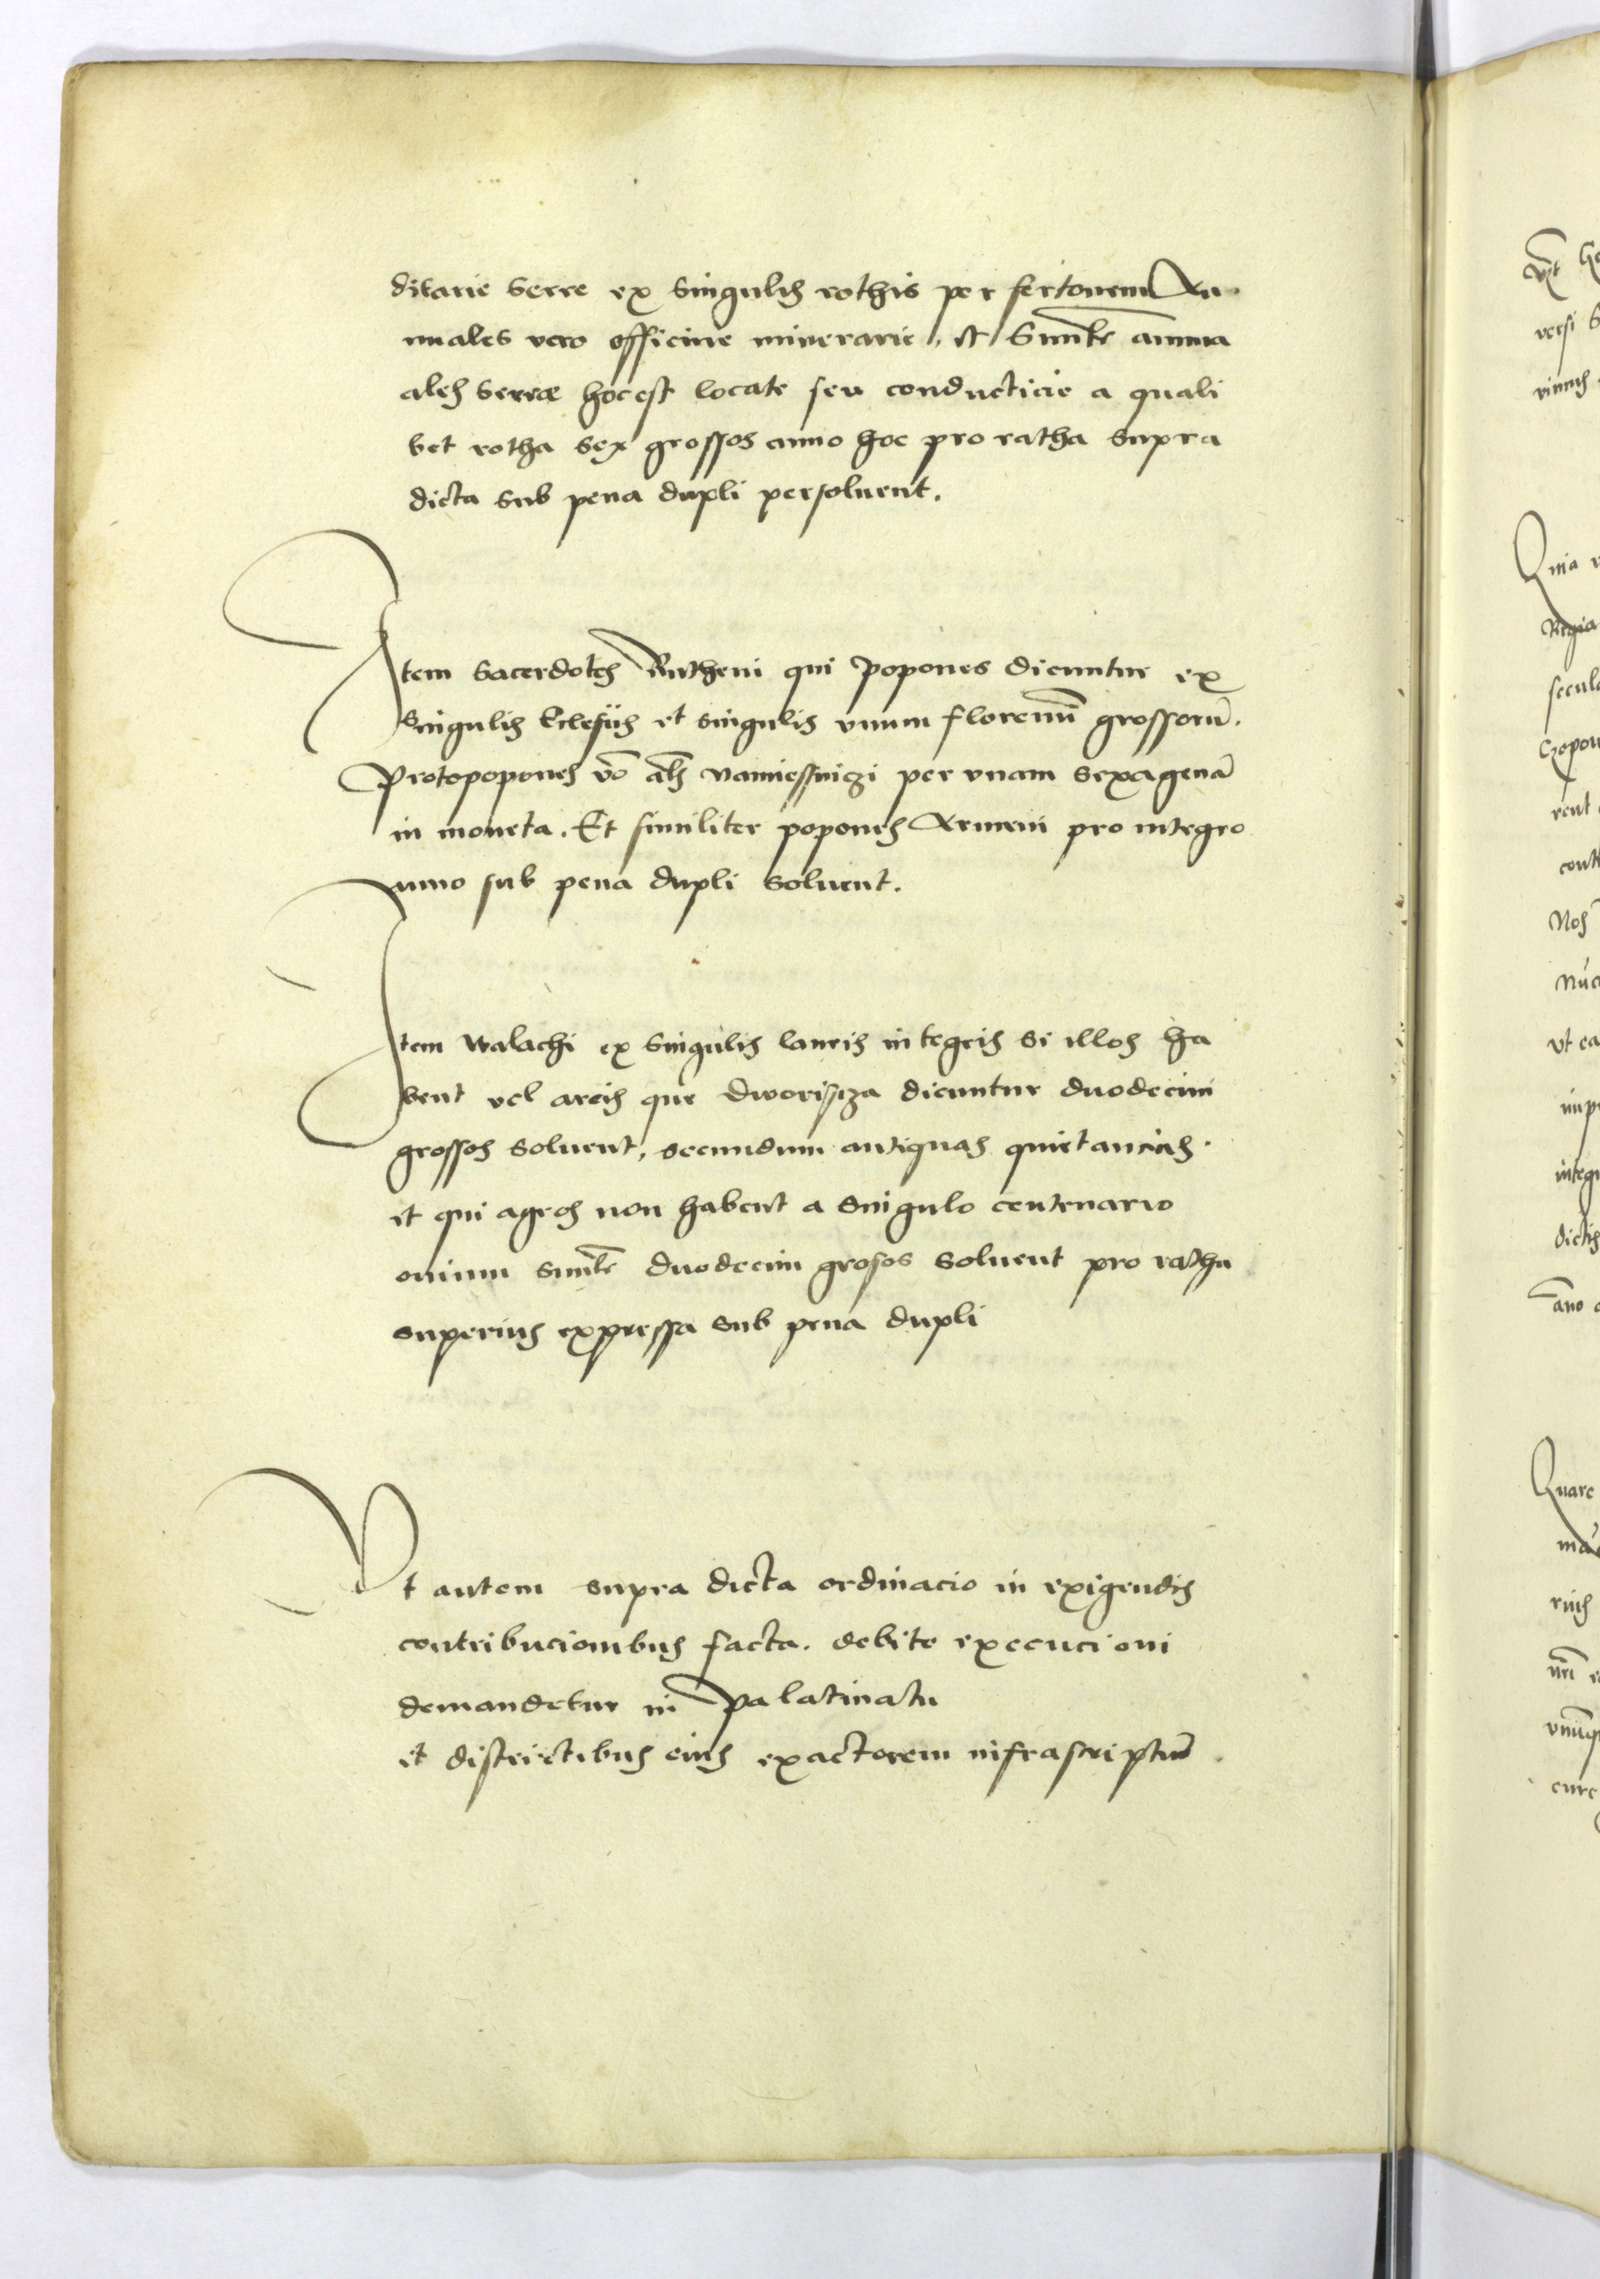 ditarie Serre ex Singulis rothis per fertonem An
nuales vero officine minerarie, et Simlr̄ annua
ales Serrae hoc est locate seu conducticie a quali
bet rotha sex grossos anno hoc pro ratha supra
dicta sub pena dupli persoluent.
Item Sacerdotes Rutheni qui Popones dicuntur ex
Singulis Eclesijs et singulis vnum florenū grossorū.
Protopopones vō als Namiessniczi per vnam sexagenā
in moneta. Et similiter popones Armeni pro integro
anno sub pena dupli soluent.
Item Walachi ex Singulis laneis integris si illos ha
bent vel areis que dworissza dicuntur duodecim
grossos soluent, secundum antiquas quietancias.
et qui agros non habent a Singulo centenario
ouium simlr̄ duodecim grosos soluent pro ratha
superius expressa sub pena dupli
Vt autem supra dicta ordinacio in exigendis
contribucionibus facta. debite execucioni
demandetur in Palatinatu
et districtibus eius exactorem infrascriptū.
Quia
Regia
Nos
Quare